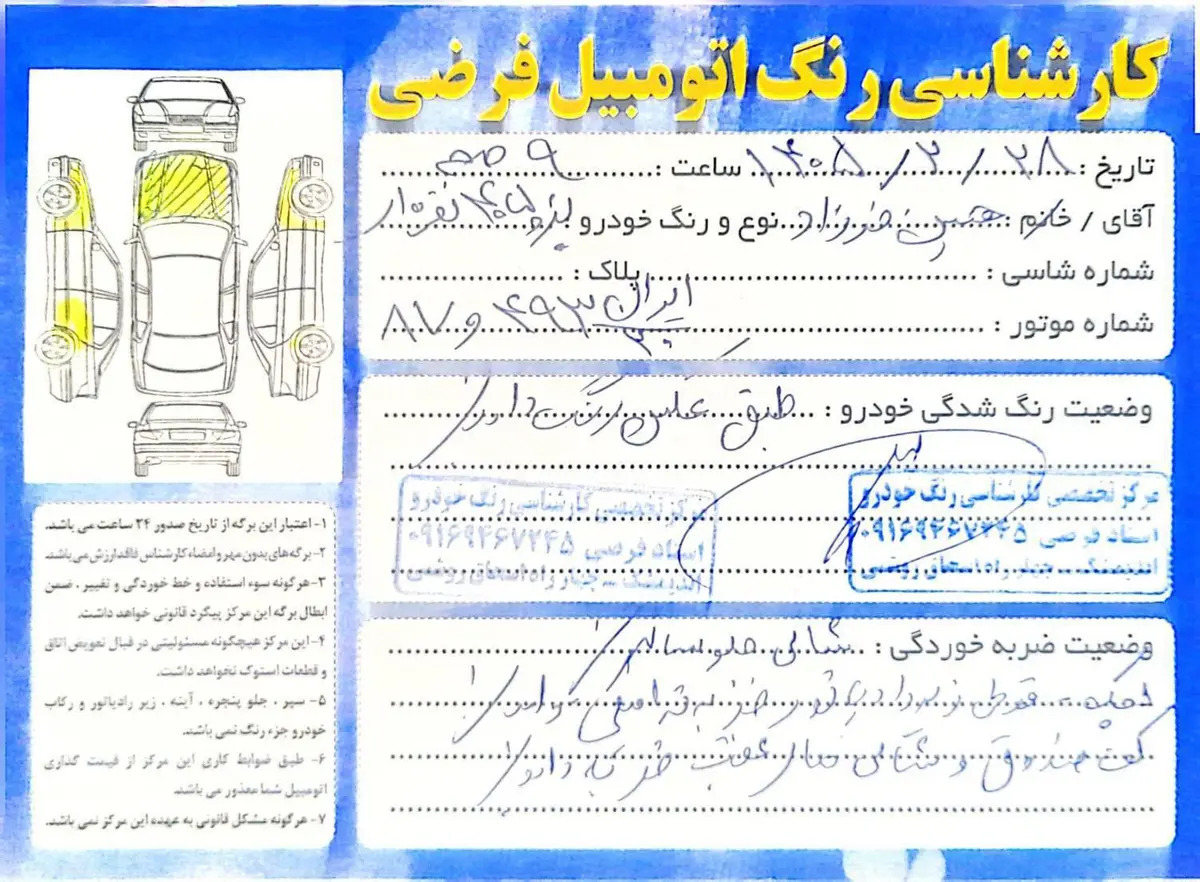 کارشناسی رنگ اتومبیل فرضی
تاریخ : ۱۴۰۵/۲/۲۸ ساعت : ۹ صبح
آقای / خانم : نوع و رنگ خودرو پژو ۴۰۵ نقره‌ای
شماره شاسی : پلاک :
ایران
شماره موتور : ۸۷ و ۴۹۳
۲۰
وضعیت رنگ شدگی خودرو : طبق عکس رنگ دارد
مرکز تخصصی کارشناسی رنگ خودرو
استاد فرضی ۰۹۱۶۹۲۶۷۲۴۵
اندیمشک - چهار راه اسحاق روشنی
مرکز تخصصی کارشناسی رنگ خودرو
استاد فرضی ۰۹۱۶۹۲۶۷۲۴۵
اندیمشک - چهار راه اسحاق روشنی
وضعیت ضربه خوردگی : شاسی جلو سالم
ضربه دارد
کف صندوق و شاسی عقب ضربه دارد
۱- اعتبار این برگه از تاریخ صدور ۲۴ ساعت می باشد.
۲- برگه های بدون مهر و امضاء کارشناس فاقد ارزش می باشد.
۳- هرگونه سوء استفاده و خط خوردگی و تغییر ، ضمن
ابطال برگه این مرکز پیگرد قانونی خواهد داشت.
۴- این مرکز هیچگونه مسئولیتی در قبال تعویض اتاق
و قطعات استوک نخواهد داشت.
۵- سپر ، جلو پنجره ، آینه ، زیر رادیاتور و رکاب
خودرو جزء رنگ نمی باشد.
۶- طبق ضوابط کاری این مرکز از قیمت گذاری
اتومبیل شما معذور می باشد.
۷- هرگونه مشکل قانونی به عهده این مرکز نمی باشد.